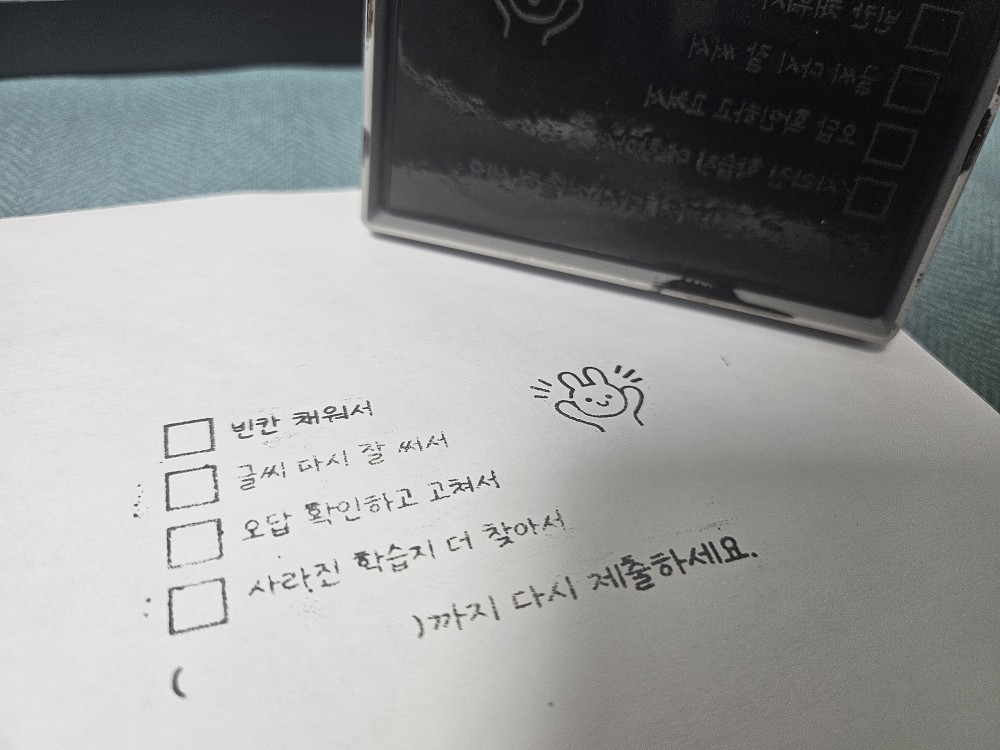 빈칸 채워서
글씨 다시 잘 써서
오답 확인하고 고쳐서
사라진 학습지 더 찾아서
( )까지 다시 제출하세요.